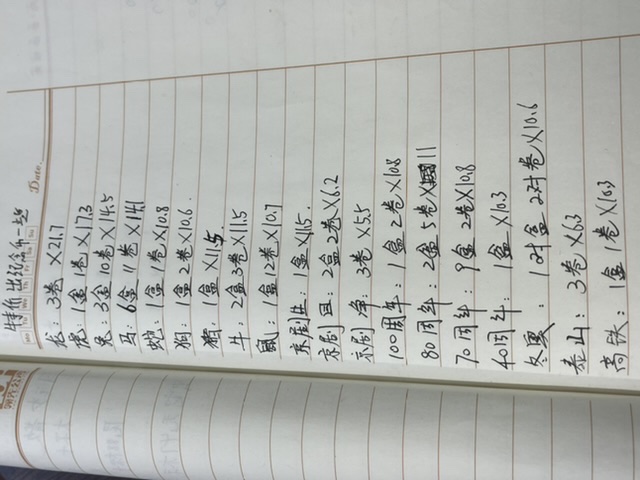 特价出纪念币一些
Date.
龙：3卷×21.7
虎：1盒1卷×17.3
兔：3盒10卷×14.5
马：6盒11卷×14.1
蛇：1盒1卷×10.8
狗：1盒2卷×10.6.
猴：1盒×11.5
牛：2盒3卷×11.5
鼠：1盒12卷×10.7
京剧生：1盒×11.5.
京剧旦：2盒2卷×6.2
京剧净：3卷×5.5
100周年：1盒2卷×10.8
80周年：2盒5卷×11
70周年：9盒2卷×10.8
40周年：1盒×10.3
冬奥：1对盒2对卷×10.6
泰山：3卷×6.3
高铁：1盒1卷×10.3